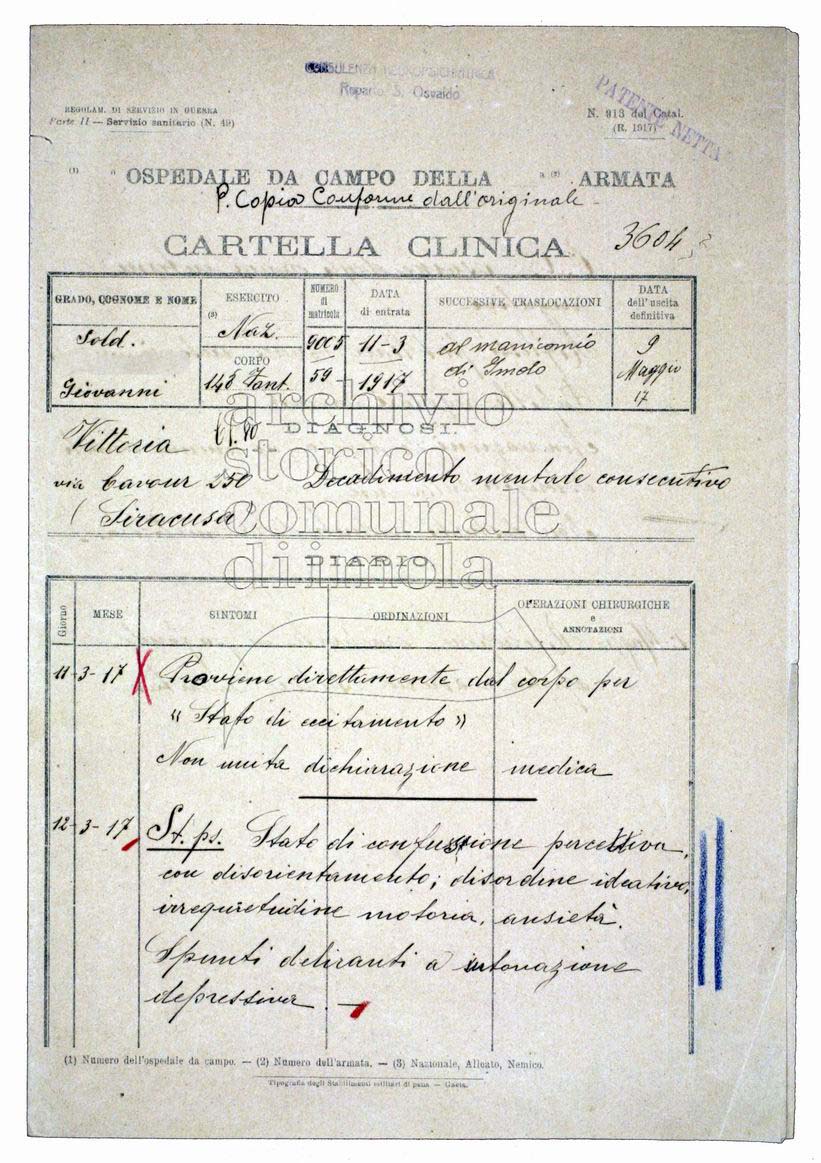 CONSULENZA NEUROPSICHIATRICA
Reparto S. Osvaldo
PATENTE NETTA
REGOLAM. DI SERVIZIO IN GUERRA
Parte II — Servizio sanitario (N. 49)
N. 913 del Catal.
(R. 1917)
(1) OSPEDALE DA CAMPO DELLA (2) ARMATA
P. Copia Conforme dall'originale
CARTELLA CLINICA 3604
GRADO, COGNOME E NOME
ESERCITO
NUMERO di matricola
DATA di entrata
SUCCESSIVE TRASLOCAZIONI
DATA dell'uscita definitiva
Sold.
(3) Naz.
9005
11-3
al manicomio
9
CORPO
di Imola
Maggio
Giovanni
148 Fant.
59
1917
17
archivio
storico
comunale
di imola
DIAGNOSI
Vittoria Cl. 80
via Cavour 250 Decadimento mentale consecutivo
(Siracusa)
DIARIO
Giorno
MESE
SINTOMI
ORDINAZIONI
OPERAZIONI CHIRURGICHE
e
ANNOTAZIONI
11-3-17 X Proviene direttamente dal corpo per
“Stato di eccitamento”
Non unita dichiarazione medica
12-3-17 St. ps. Stato di confusione percettiva,
con disorientamento; disordine ideativo,
irrequietudine motoria, ansietà.
Spunti deliranti a intonazione
depressiva. —
(1) Numero dell'ospedale da campo. — (2) Numero dell'armata. — (3) Nazionale, Alleato, Nemico.
Tipografia degli Stabilimenti militari di pena — Gaeta.